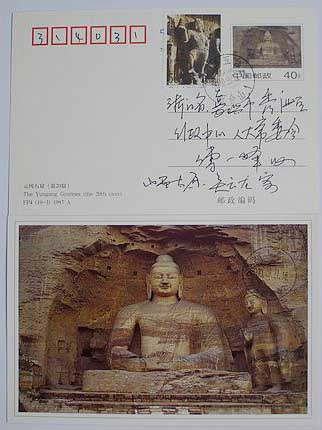 314031
中国邮政
40分
浙江省嘉兴市秀洲区
行政中心人大常委会
山西大同
云冈石窟（第20窟）
The Yungang Grottoes (the 20th cave)
FP4 (10-1) 1997 A
邮政编码